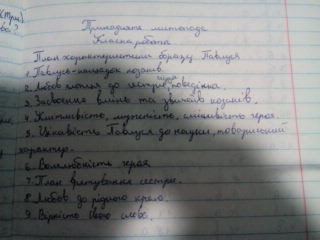 Тринадцяте листопада
Класна робота
План характеристики образу Павлуся
1. Павлусь - нащадок козаків.
2. Любов хлопця до сестри, поведінка
3. Засвоєння вмінь та звичаїв козаків.
4. Кмітливість, мужність, сміливість героя.
5. Цікавість Павлуся до науки, товариський
характер.
6. Волелюбність героя.
7. План врятування сестри.
8. Любов до рідного краю.
9. Вірність свою слову.